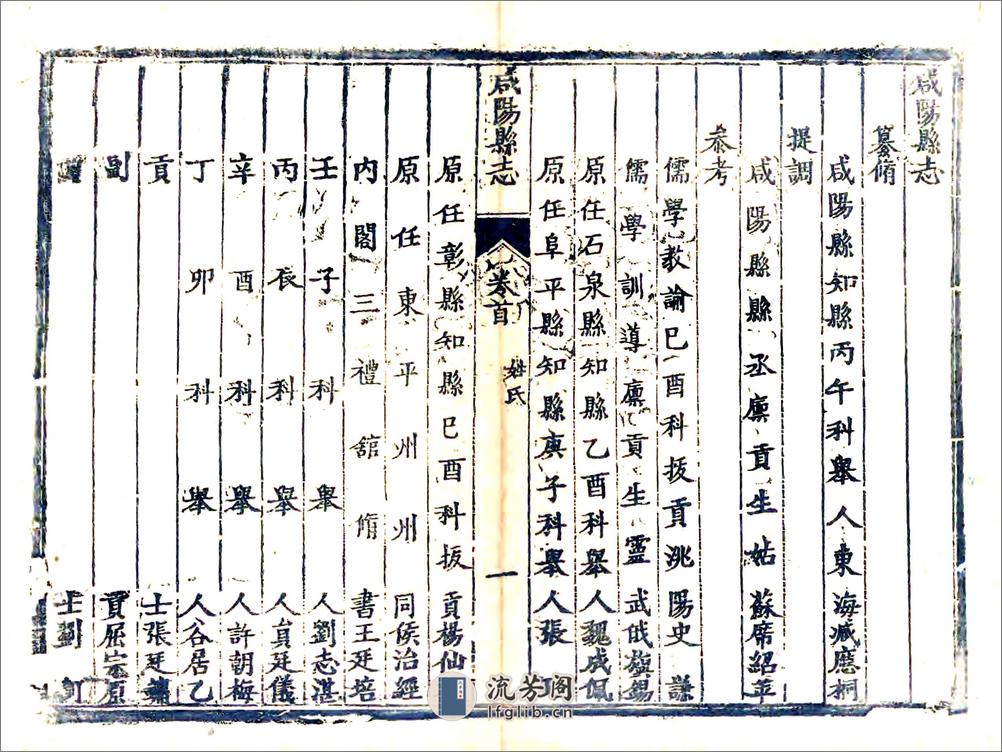 咸陽縣志
纂脩
咸陽縣知縣丙午科舉人東海臧應桐
提調
咸陽縣縣丞廩貢生姑蘇席紹苹
叅考
儒學教諭己酉科拔貢洮陽史謙
儒學訓導廩貢生靈武戗璇錫
原任石泉縣知縣乙酉科舉人魏成佩
原任阜平縣知縣庚子科舉人張
咸陽縣志
卷首
姓氏
一
原任彰縣知縣己酉科拔貢楊仙
原任東平州州同侯治經
內閣三禮館脩書王廷培
壬子科舉人劉志湛
丙辰科舉人員廷儀
辛酉科舉人許朝梅
丁卯科舉人谷居乙
貢士張廷
副貢屈宗原
士劉
流芳阁
lfglib.cn